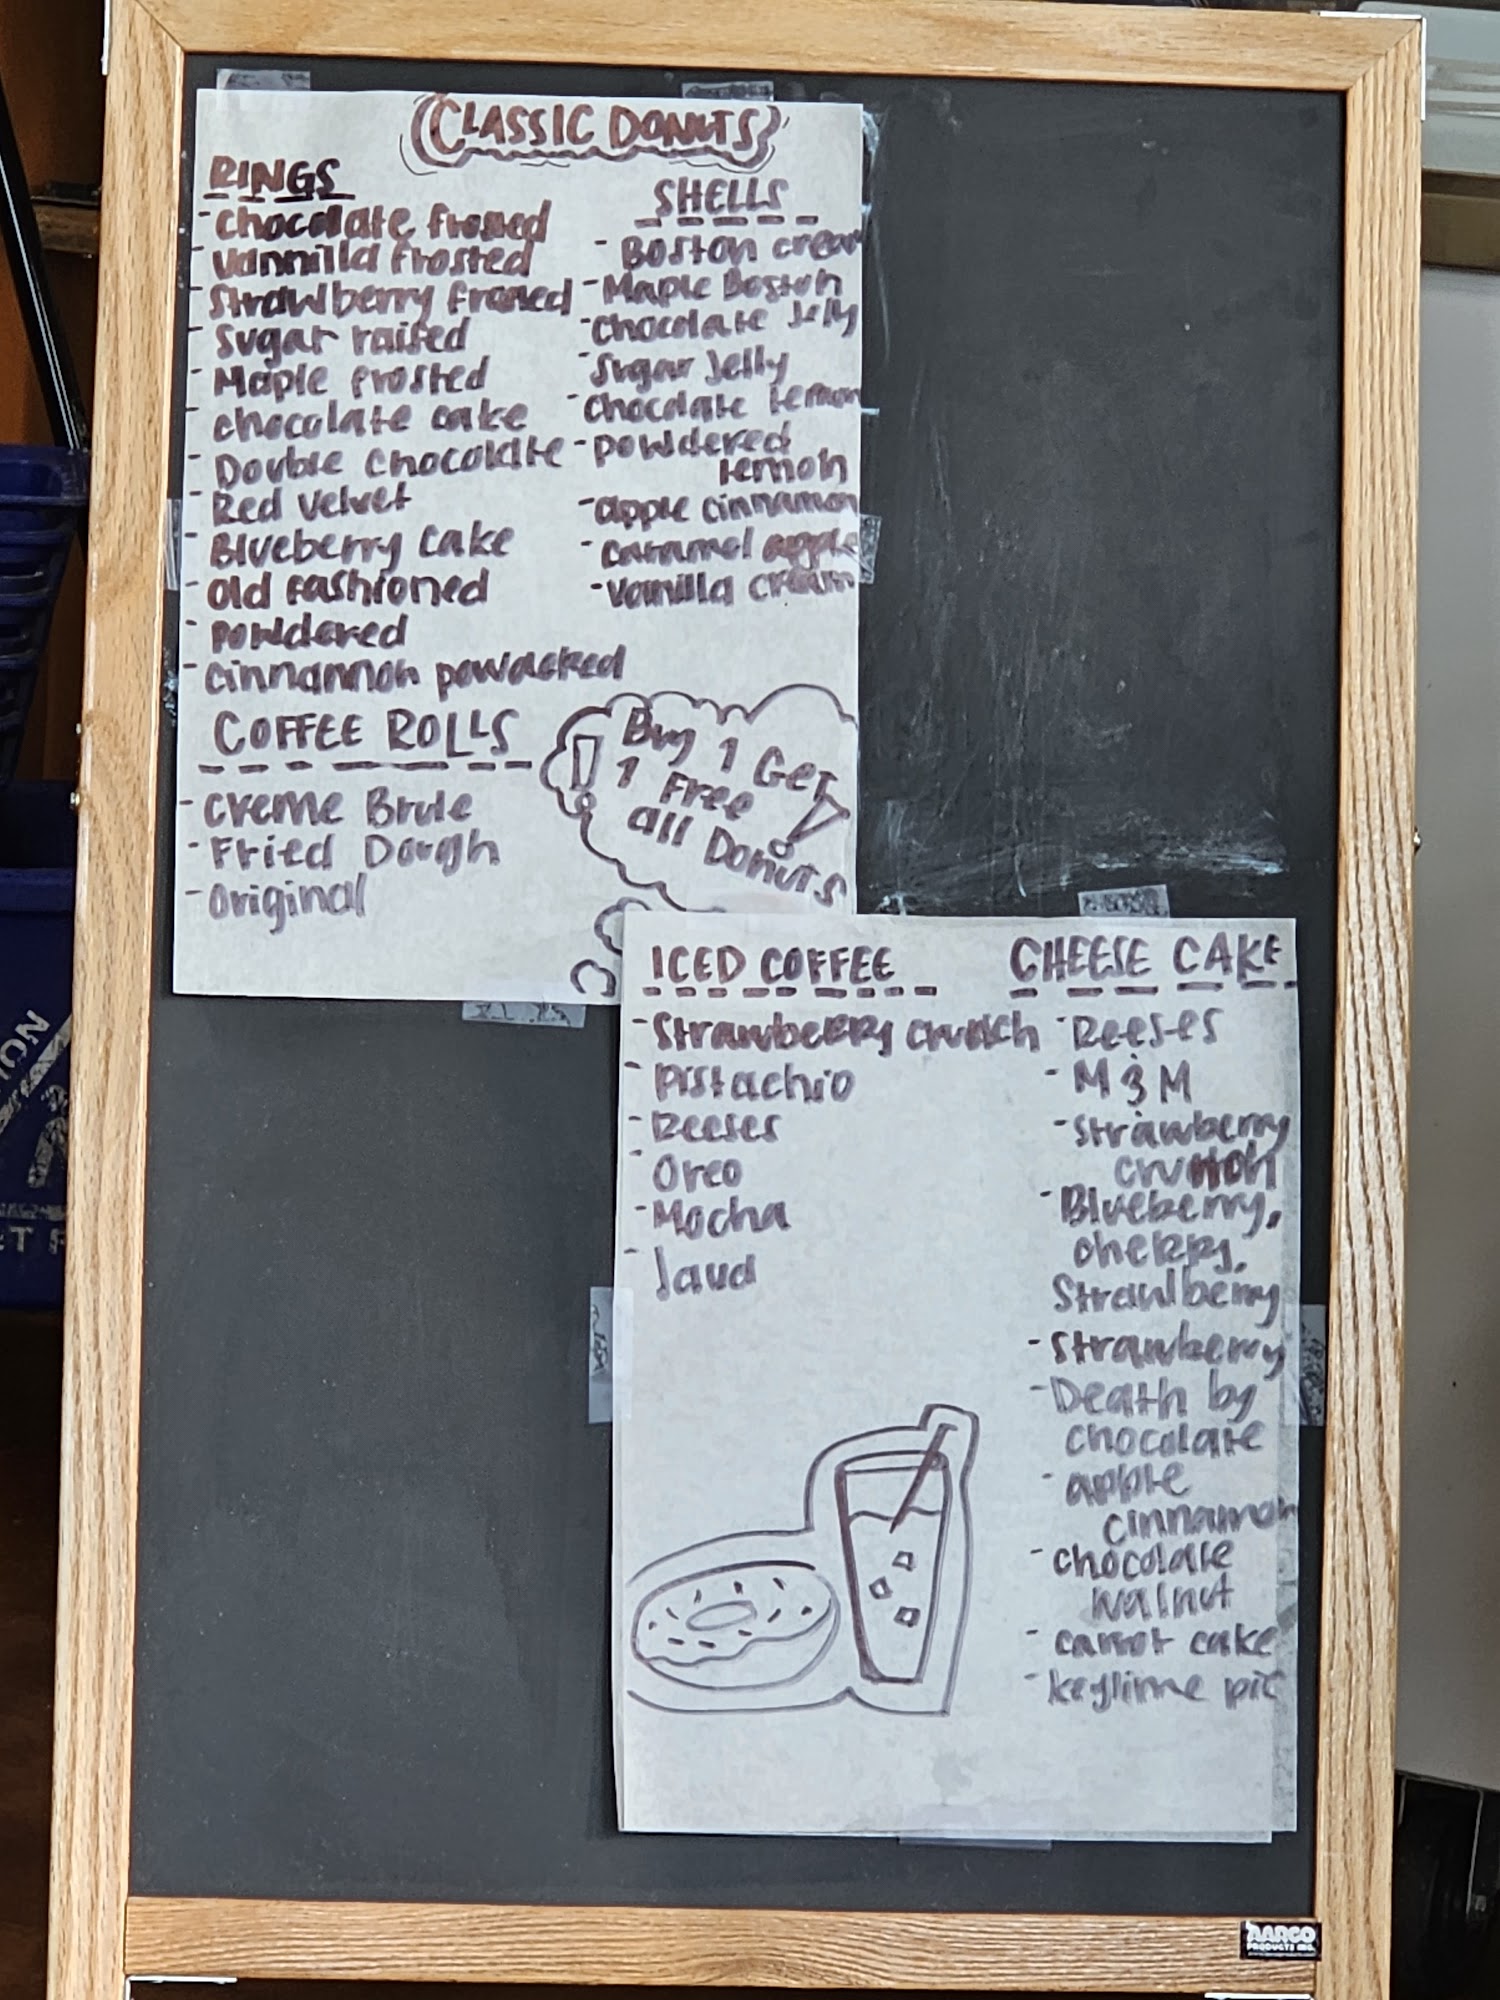 CLASSIC DONUTS
RINGS
- Chocolate frosted
- Vannilla frosted
- Strawberry frosted
- Sugar raised
- Maple frosted
- chocolate cake
- Double chocolate
- Red velvet
- Blueberry cake
- Old fashioned
- Powdered
- Cinnannon powdered
SHELLS
- Boston cream
- Maple Boston
- Chocolate Jelly
- Sugar Jelly
- Chocolate lemon
- Powdered
lemon
- apple cinnamon
- caramel apple
- vanilla cream
COFFEE ROLLS
- Creme Brule
- Fried Dough
- Original
Buy 1 Get
1 Free
all Donuts
ICED COFFEE
- Strawberry crunch
- Pistachio
- Reeses
- Oreo
- Mocha
CHEESE CAKE
- Reeses
- M & M
- Strawberry
crunch
- Blueberry,
cherry,
Strawberry
- Strawberry
- Death by
chocolate
- apple
cinnamon
- chocolate
walnut
- carrot cake
- keylime pie
AARCO
PRODUCTS INC.